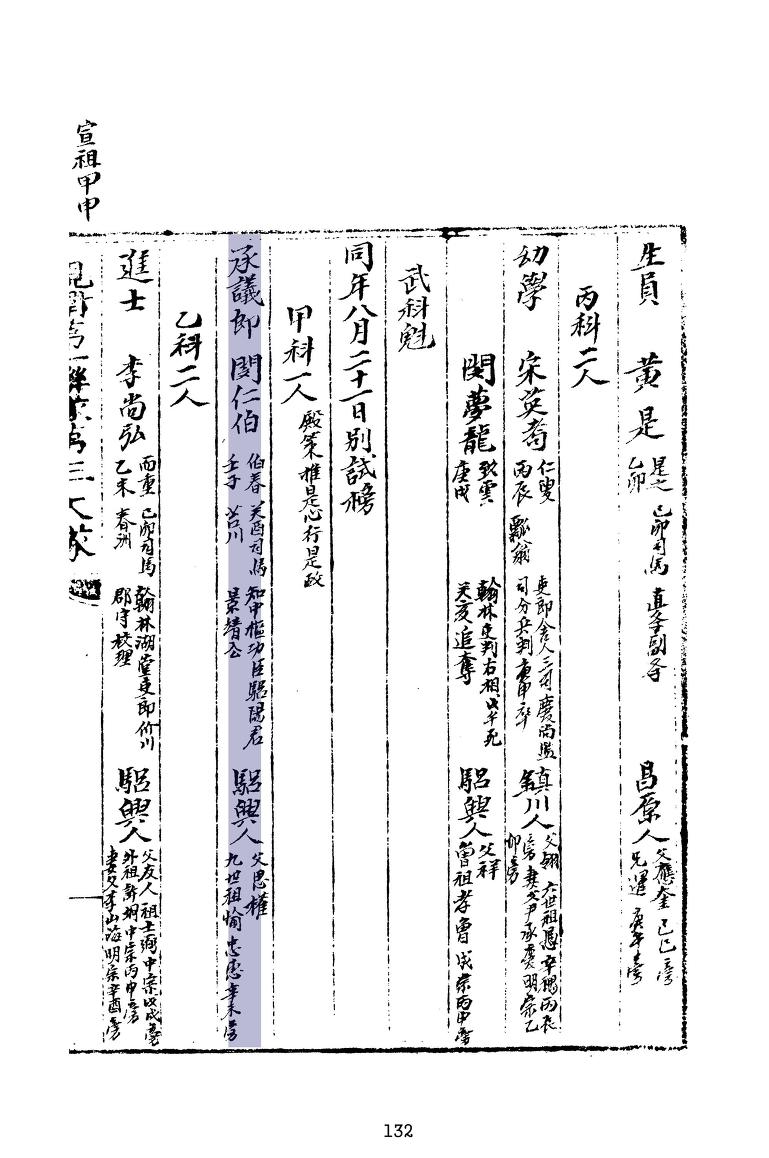 宣祖甲申
生員 黃是 是之 乙卯 己卯司馬 直子副子 昌原人 父應奎 己巳榜 兄暹 庚午榜
丙科二人
幼學 宋英耇 仁叟 丙辰 瓢翁 吏郎舍人三司慶尚監司分兵判庚申卒 鎮川人 父翎 六世祖愚 辛禑丙辰榜 妻父尹承慶 明宗乙卯榜
閔夢龍 致雲 庚戌 翰林吏判右相戊午死 癸亥追奪 驪興人 父祥 曾祖孝曾 成宗丙申榜
武科魁
同年八月二十一日別試榜
甲科一人 殿策推是心行是政
承議郎 閔仁伯 伯春 壬子 癸酉司馬 苔川 知中樞功臣驪陽君 景靖公 驪興人 父思權 九世祖愉 忠惠辛未榜
乙科二人
進士 李尚弘 而重 乙未 己卯司馬 春洲 翰林湖堂吏郎价川郡守校理 驪興人 父友人 祖士弼 中宗戊戌榜 外祖 中宗丙申榜 妻父李山海 明宗辛酉榜